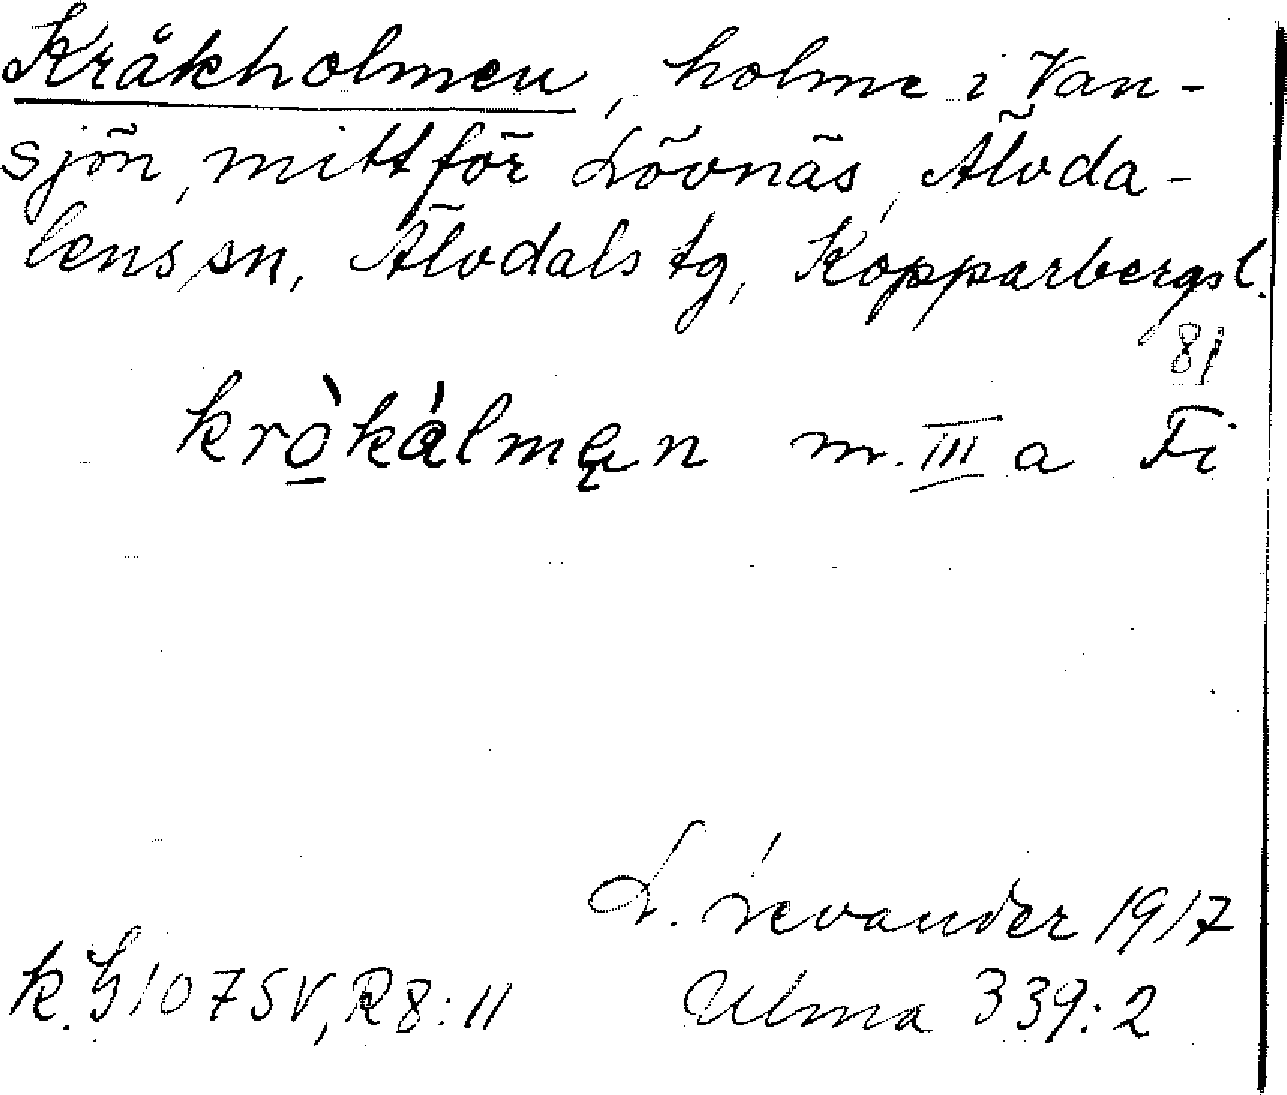 Kråkholmen, holme i Van-
sjön, mitt för Lövnäs, Älvda-
lens sn, Älvdals tg, Kopparbergs l.
81
krò̱kálmęn m. III a Fi
L. Levander 1917
k. G 107 SV, R 8:11 Ulma 339:2